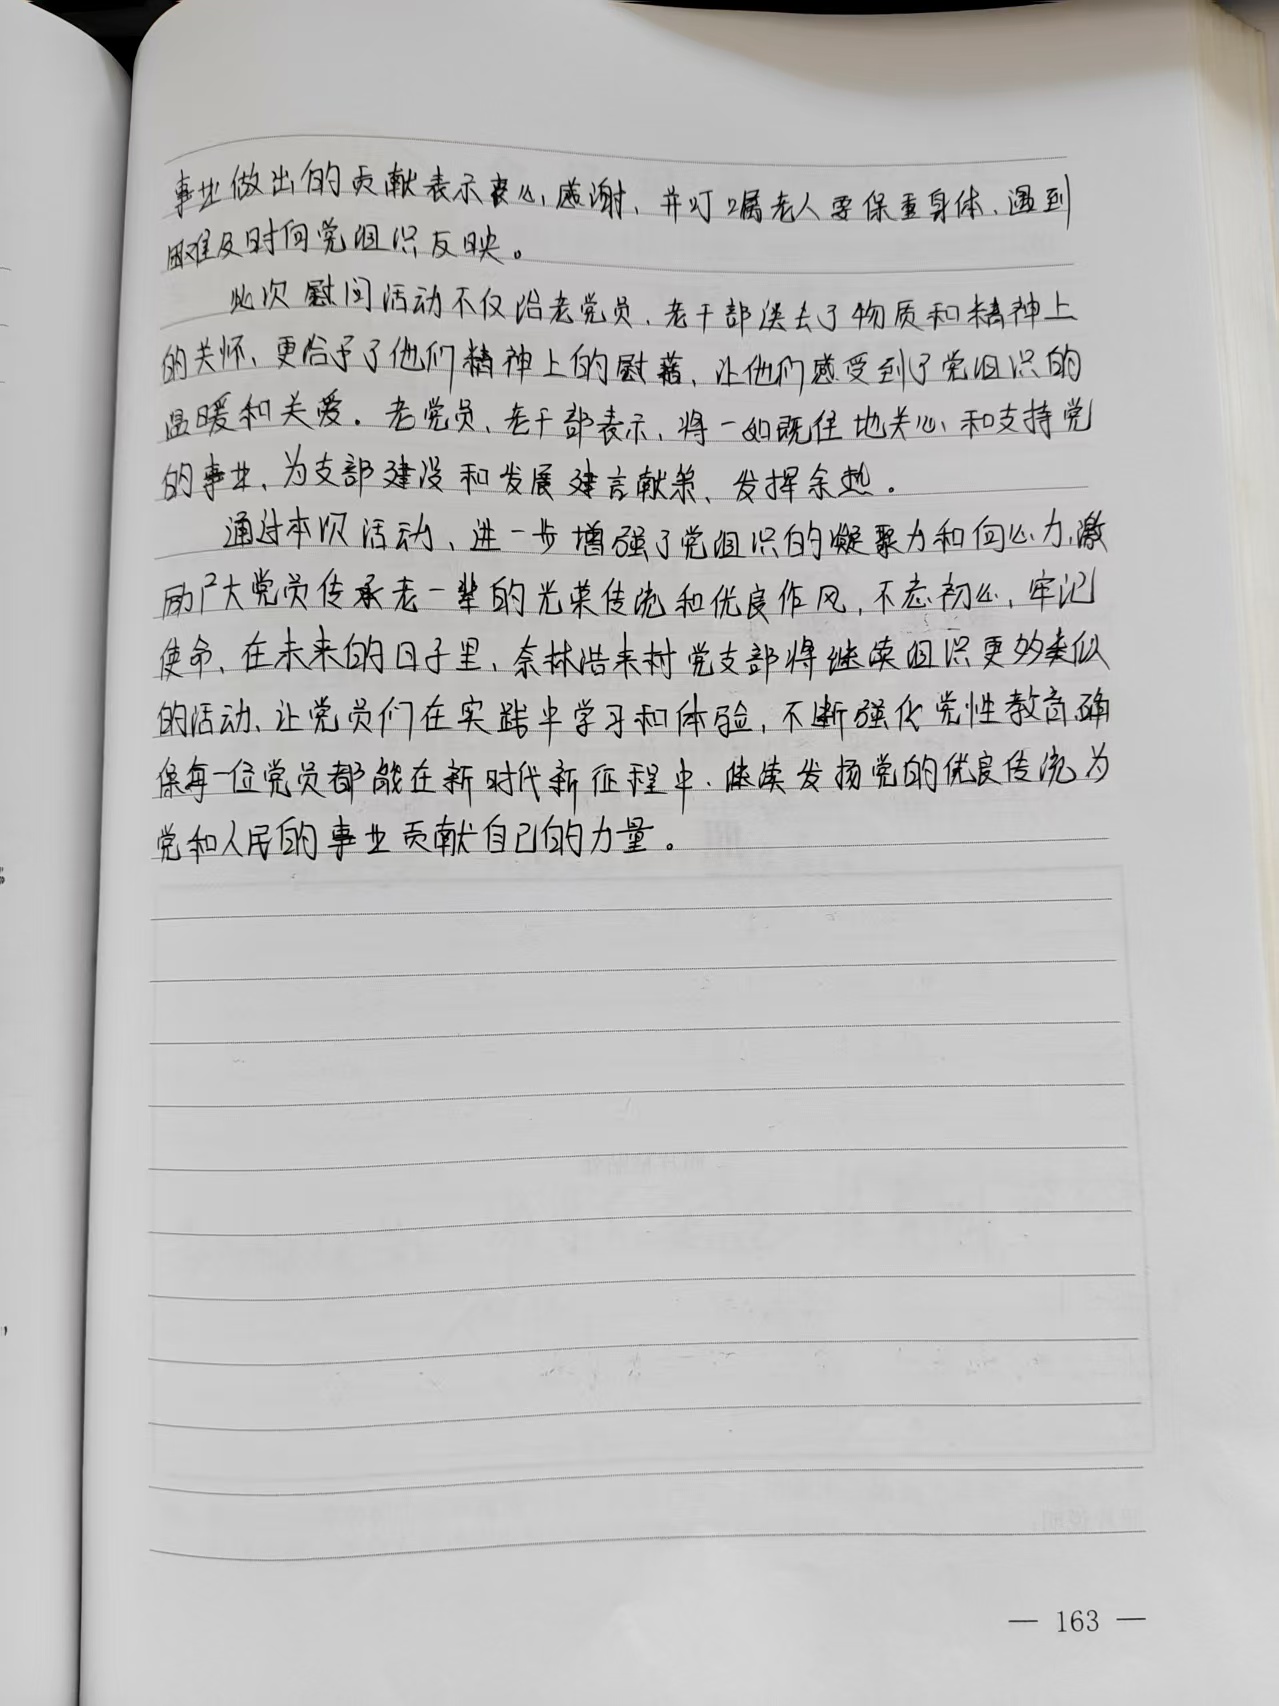 事业做出的贡献表示衷心感谢，并叮嘱老人要保重身体，遇到
困难及时向党组织反映。
此次慰问活动不仅给老党员、老干部送去了物质和精神上
的关怀，更给予了他们精神上的慰藉，让他们感受到了党组织的
温暖和关爱。老党员、老干部表示，将一如既往地关心和支持党
的事业，为支部建设和发展建言献策、发挥余热。
通过本次活动，进一步增强了党组织的凝聚力和向心力，激
励广大党员传承老一辈的光荣传统和优良作风，不忘初心，牢记
使命，在未来的日子里，奈林浩来村党支部将继续组织更多类似
的活动，让党员们在实践中学习和体验，不断强化党性教育，确
保每一位党员都能在新时代新征程中，继续发扬党的优良传统为
党和人民的事业贡献自己的力量。
— 163 —